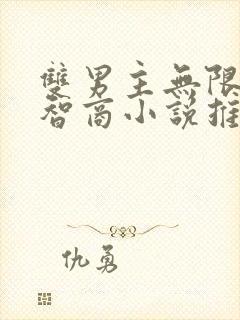 雙男主無限
智商小說推
仇勇